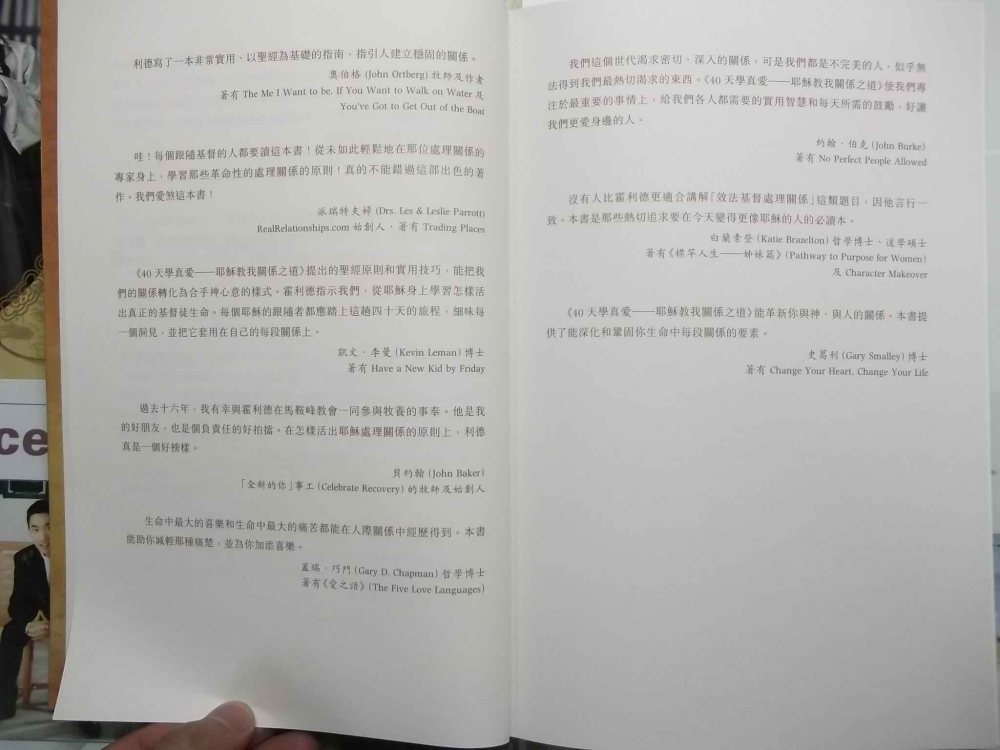 利德寫了一本非常實用、以聖經為基礎的指南，指引人建立穩固的關係。
奧伯格 (John Ortberg) 牧師及作者
著有 The Me I Want to be, If You Want to Walk on Water 及
You've Got to Get Out of the Boat
哇！每個跟隨基督的人都要讀這本書！從未如此輕鬆地在那位處理關係的
專家身上，學習那些革命性的處理關係的原則！真的不能錯過這部出色的著
作。我們愛煞這本書！
派瑞特夫婦 (Drs. Les & Leslie Parrott)
RealRelationships.com 始創人，著有 Trading Places
《40 天學真愛——耶穌教我關係之道》提出的聖經原則和實用技巧，能把我
們的關係轉化為合乎神心意的樣式。霍利德指示我們，從耶穌身上學習怎樣活
出真正的基督徒生命。每個耶穌的跟隨者都應踏上這趟四十天的旅程，細味每
一個洞見，並把它套用在自己的每段關係上。
凱文．李曼 (Kevin Leman) 博士
著有 Have a New Kid by Friday
過去十六年，我有幸與霍利德在馬鞍峰教會一同參與牧養的事奉。他是我
的好朋友，也是個負責任的好拍擋。在怎樣活出耶穌處理關係的原則上，利德
真是一個好榜樣。
貝約翰 (John Baker)
「全新的你」事工 (Celebrate Recovery) 的牧師及始創人
生命中最大的喜樂和生命中最大的痛苦都能在人際關係中經歷得到。本書
能助你減輕那種痛楚，並為你加添喜樂。
蓋瑞．巧門 (Gary D. Chapman) 哲學博士
著有《愛之語》(The Five Love Languages)
我們這個世代渴求密切、深入的關係，可是我們都是不完美的人，似乎無
法得到我們最熱切渴求的東西。《40 天學真愛——耶穌教我關係之道》使我們專
注於最重要的事情上，給我們各人都需要的實用智慧和每天所需的鼓勵，好讓
我們更愛身邊的人。
約翰．伯克 (John Burke)
著有 No Perfect People Allowed
沒有人比霍利德更適合講解「效法基督處理關係」這類題目，因他言行一
致。本書是那些熱切追求要在今天變得更像耶穌的人的必讀本。
白蘭素登 (Katie Brazelton) 哲學博士、道學碩士
著有《標竿人生——姊妹篇》(Pathway to Purpose for Women)
及 Character Makeover
《40 天學真愛——耶穌教我關係之道》能革新你與神、與人的關係。本書提
供了能深化和鞏固你生命中每段關係的要素。
史莫利 (Gary Smalley) 博士
著有 Change Your Heart, Change Your Life
ce